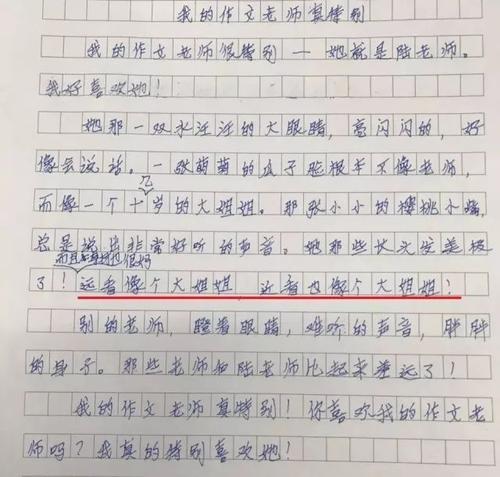 我的作文老师真特别
我的作文老师很特别——她就是陆老师。
我好喜欢她！
她那一双水汪汪的大眼睛，亮闪闪的，好
像会说话。一张萌萌的瓜子脸根本不像老师，
几
而像一个十岁的大姐姐。那张小小的樱桃小嘴，
总是说出非常好听的声音。她那些长头发美极
而且身材也很好
了！远看像个大姐姐，近看也像个大姐姐！
别的老师，瞪着眼睛，难听的声音，胖胖
的身子。那些老师和陆老师比起来差远了！
我的作文老师真特别！你喜欢我的作文老
师吗？我真的特别喜欢她！